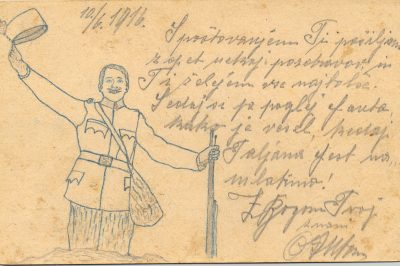 10/6. 1916.
Spoštovanjem Ti pošiljam
zopet nekaj pozdravov in
Ti želejem vse najbolše.
Sedaj se pa poglej
kako je vesel, kedaj
Taljana fest na
mlatimo!
Z Bogom Tvoj
znani